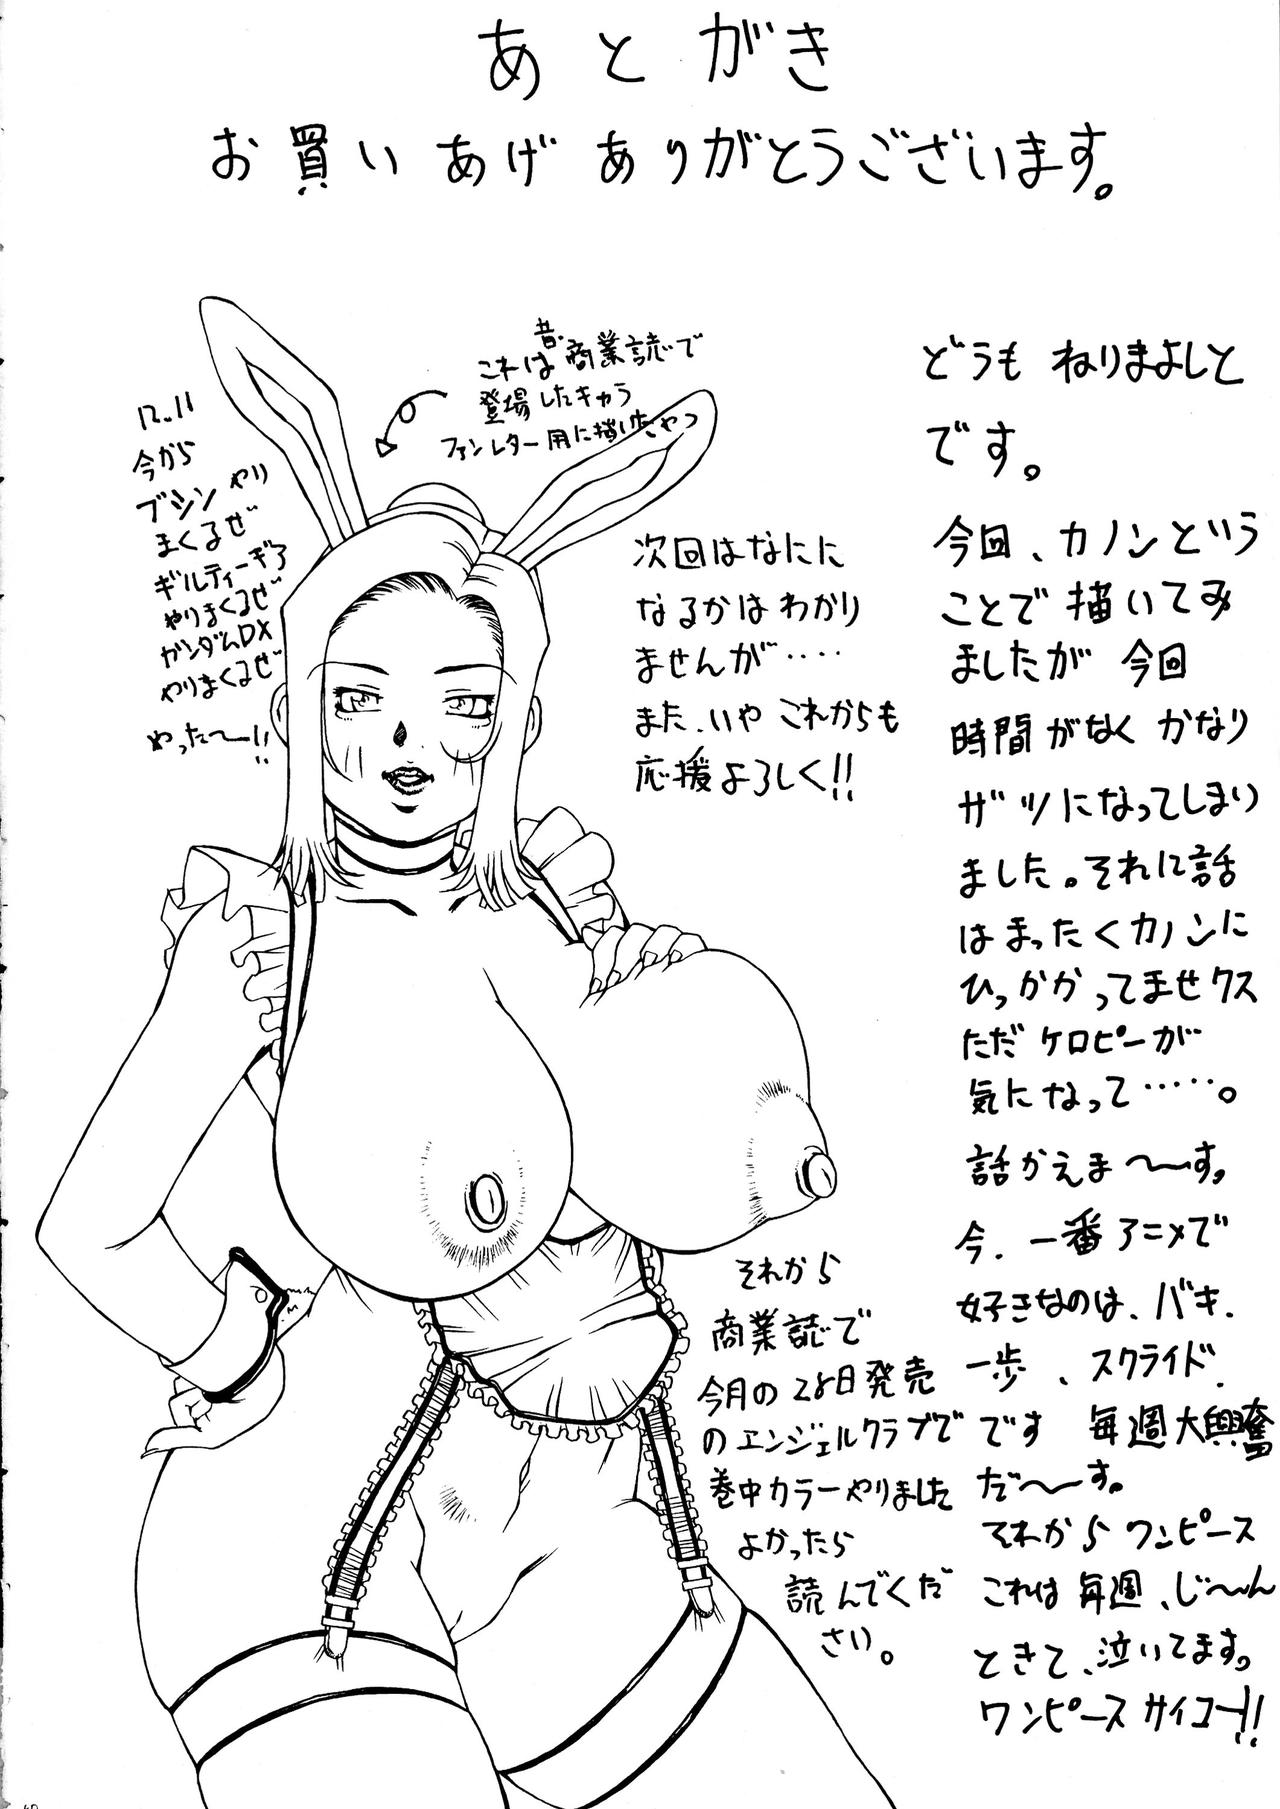 あとがき
お買いあげありがとうございます。
どうも ねりまよしと
です。
今回、カノンという
ことで描いてみ
ましたが 今回
時間がなく かなり
ザツになってしまい
ました。それに話
はまったくカノンに
ひっかかってませクス
ただケロピーが
気になって‥‥‥。
話かえま〜〜す。
今、一番アニメで
好きなのは、バキ、
一歩、スクライド、
です 毎週大興奮
だ〜〜す。
それから ワンピース
これは毎週、じ〜〜ん
ときて、泣いてます。
ワンピースサイコー!!
昔、
これは商業誌で
登場したキャラ
ファンレター用に描いたやつ
次回はなにに
なるかはわかり
ませんが‥‥
また、いや これからも
応援よろしく!!
それから
商業誌で
今月の28日発売
のエンジェルクラブで
巻中カラーやりました
よかったら
読んでくだ
さい。
12.11
今から
ブシン やり
まくるぜ
ギルティーギア
やりまくるぜ
ガンダムDX
やりまくるぜ
やった〜〜!!